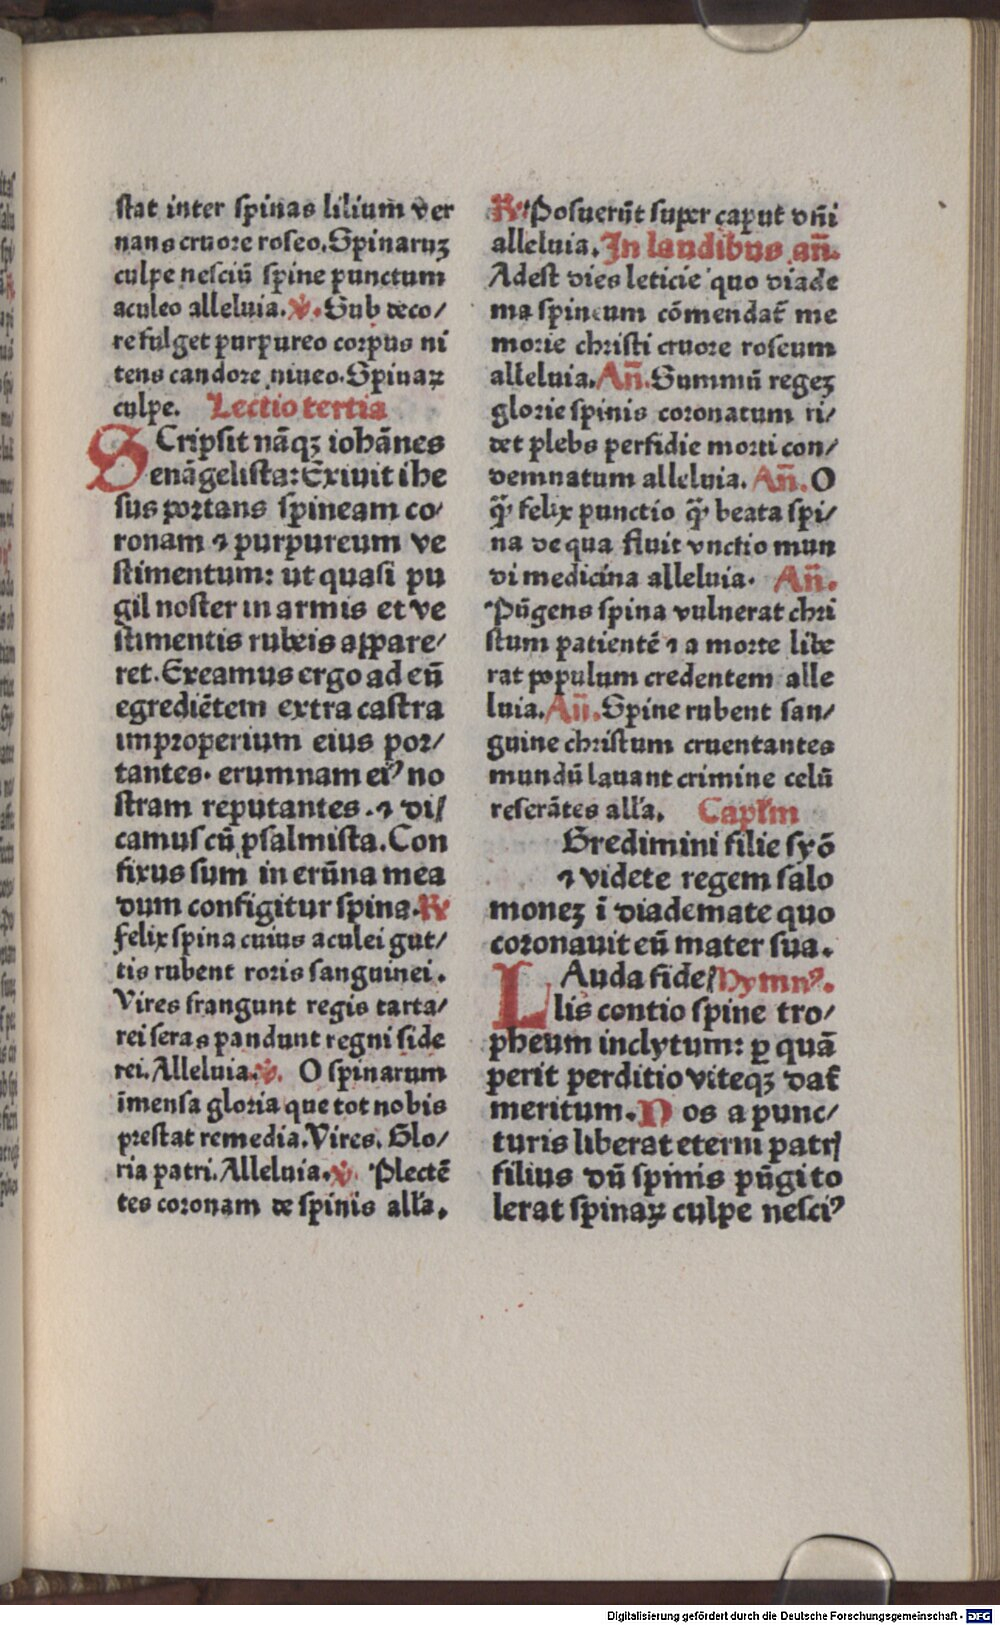 stat inter spinas lilium ver
nans cruore roseo. Spinaruꝫ
culpe nesciū spine punctum
aculeo alleluia. ℣. Sub deco/
re fulget purpureo corpus ni
tens candore niueo. Spinaꝝ
culpe. Lectio tertia
SCripsit nāqꝫ iohānes
euāgelista: Exiuit ihe
sus portans spineam co/
ronam ⁊ purpureum ve
stimentum: ut quasi pu
gil noster in armis et ve
stimentis rubeis appare/
ret. Exeamus ergo ad eū
egrediētem extra castra
improperium eius por/
tantes. erumnam eiꝰ no
stram reputantes. ⁊ di/
camus cū psalmista. Con
fixus sum in erūna mea
dum configitur spina. ℟
felix spina cuius aculei gut/
tis rubent roris sanguinei.
Vires frangunt regis tarta/
rei seras pandunt regni side
rei. Alleluia. ℣. O spinarum
īmensa gloria que tot nobis
prestat remedia. Vires. Glo/
ria patri. Alleluia. ℣. Plectē
tes coronam de spinis alľa.
℟. Posuerūt super caput dñi
alleluia. In laudibus añ.
Adest dies leticie quo diade
ma spineum cōmendat̄ me
morie christi cruore roseum
alleluia. Añ. Summū regeꝫ
glorie spinis coronatum ri/
det plebs perfidie morti con/
demnatum alleluia. Añ. O
q̄ꝫ felix punctio q̄ꝫ beata spi/
na de qua fluit vnctio mun
di medicina alleluia. Añ.
Pūgens spina vulnerat chri
stum patientē ⁊ a morte libe
rat populum credentem alle
luia. Añ. Spine rubent san/
guine christum cruentantes
mundū lauant crimine celū
reserātes alľa. Capľm
Gredimini filie syō
⁊ videte regem salo
moneꝫ ī diademate quo
coronauit eū mater sua.
LAuda fide/ Hymnꝰ.
lis contio spine tro/
pheum inclytum: ꝑ quā
perit perditio viteqꝫ dat̄
meritum. Nos a punc/
turis liberat eterni patri
filius dū spinis pūgi to
lerat spinaꝝ culpe nesciꝰ
Digitalisierung gefördert durch die Deutsche Forschungsgemeinschaft - DFG